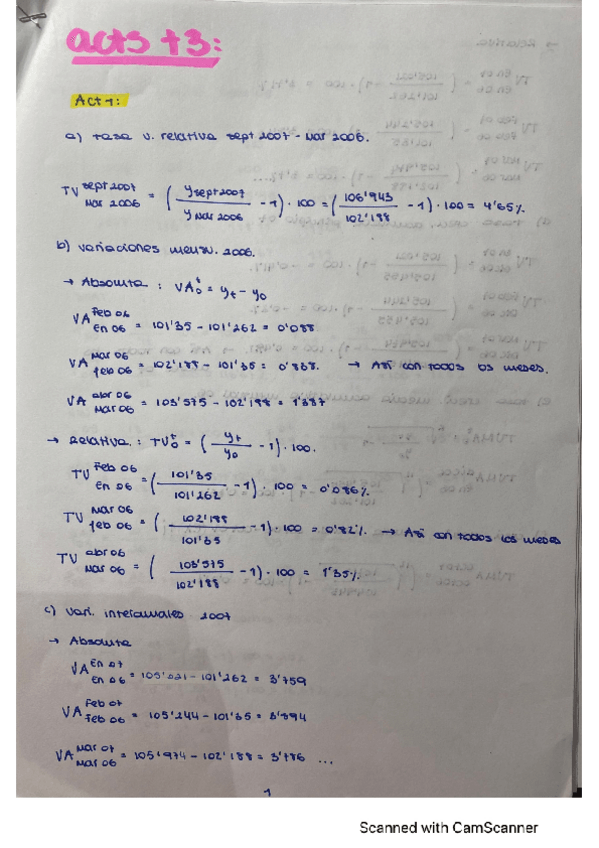 acts t3:
Act 1:
a) tasa v. relativa sept 2007 - mar 2006.
TV sept 2007 mar 2006 = ( y sept 2007 / y mar 2006 - 1) · 100 = ( 106'943 / 102'188 - 1) · 100 = 4'65%
b) variaciones mens. 2006.
→ Absoluta : VA t 0 = yt - y0
VA Feb 06 En 06 = 101'35 - 101'262 = 0'088
VA mar 06 feb 06 = 102'188 - 101'35 = 0'838. → Así con todos los meses.
VA abr 06 mar 06 = 103'575 - 102'188 = 1'387
→ Relativa. : TV t 0 = ( yt / y0 - 1) · 100.
TV Feb 06 En 06 = ( 101'35 / 101'262 - 1) · 100 = 0'086%
TV mar 06 feb 06 = ( 102'188 / 101'35 - 1) · 100 = 0'82% → Así con todos los meses
TV abr 06 mar 06 = ( 103'575 / 102'188 - 1) · 100 = 1'35%.
c) vari. interanuales 2007
→ Absoluta
VA En 07 En 06 = 105'021 - 101'262 = 3'759
VA Feb 07 Feb 06 = 105'244 - 101'35 = 3'894
VA mar 07 mar 06 = 105'974 - 102'188 = 3'786 ...
1
Scanned with CamScanner